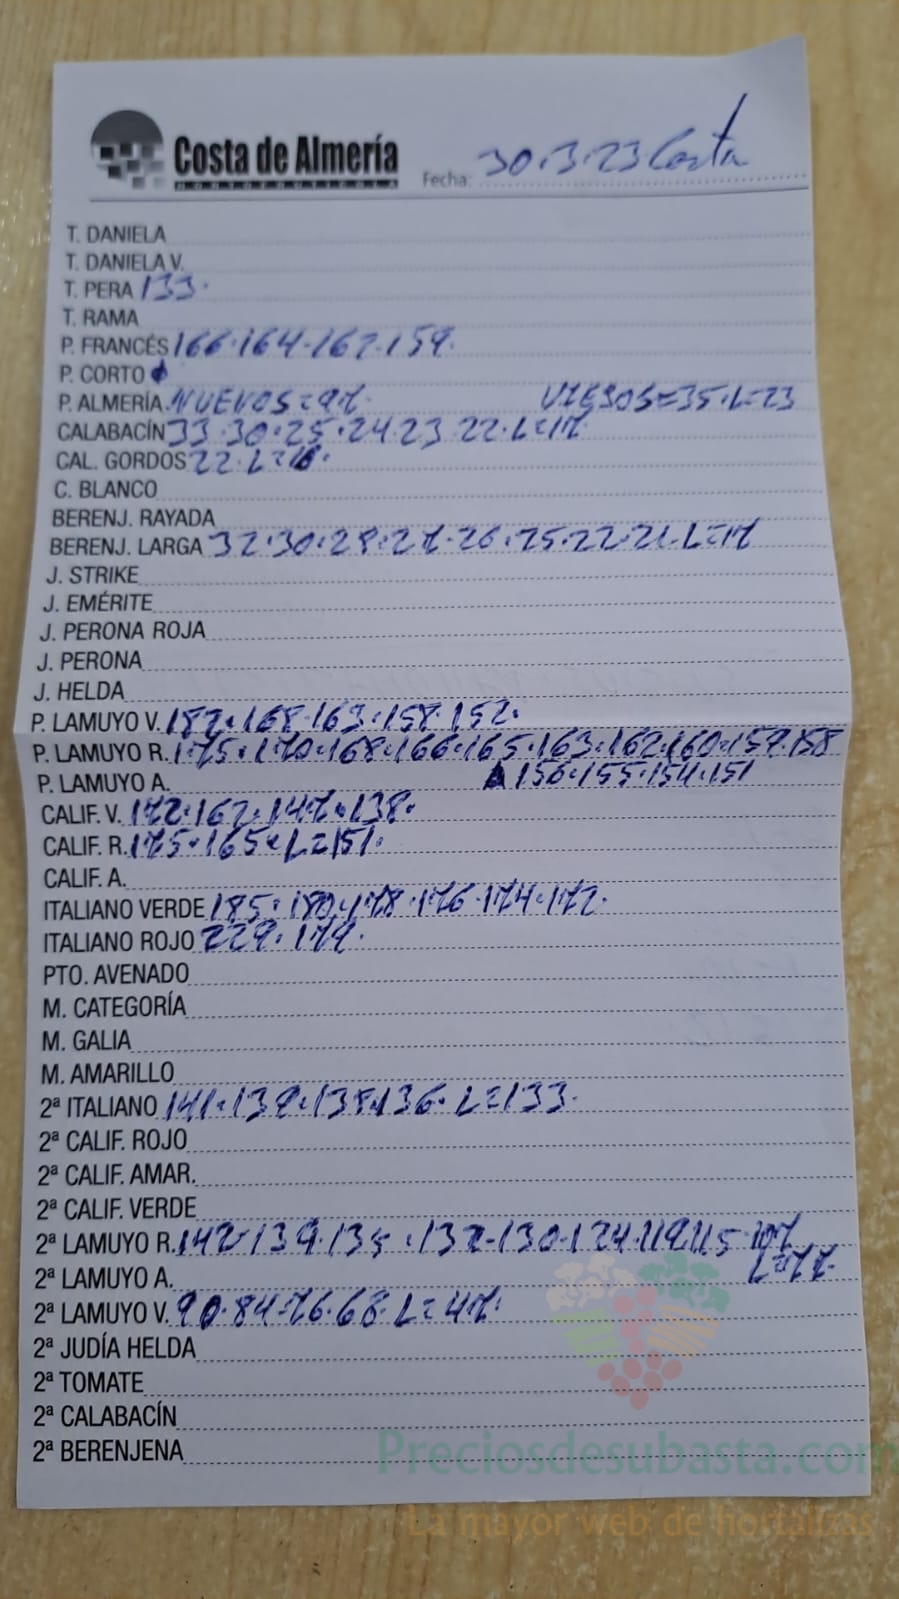 Costa de Almería
HORTOFRUTICOLA
Fecha: 30.3.23 Costa
T. DANIELA
T. DANIELA V.
T. PERA 133.
T. RAMA
P. FRANCÉS 166.164.162.159.
P. CORTO
P. ALMERÍA NUEVOS=97. VIEJOS=35.L=23
CALABACÍN 33.30.25.24.23.22.L=17.
CAL. GORDOS 22.L=
C. BLANCO
BERENJ. RAYADA
BERENJ. LARGA 32.30.28.27.26.25.22.21.L=17
J. STRIKE
J. EMÉRITE
J. PERONA ROJA
J. PERONA
J. HELDA
P. LAMUYO V. 187.168.163.158.152.
P. LAMUYO R. 175.170.168.166.165.163.162.160.159.158
P. LAMUYO A. 156.155.154.151
CALIF. V. 172.162.147.138.
CALIF. R. 175.165.L=151.
CALIF. A.
ITALIANO VERDE 185.180.178.176.174.172.
ITALIANO ROJO 229.179.
PTO. AVENADO
M. CATEGORÍA
M. GALIA
M. AMARILLO
2ª ITALIANO 141.139.138.136.L=133.
2ª CALIF. ROJO
2ª CALIF. AMAR.
2ª CALIF. VERDE
2ª LAMUYO R. 142.139.135.132.130.124.119.115.107
2ª LAMUYO A. L=77.
2ª LAMUYO V. 90.84.76.68.L=47.
2ª JUDÍA HELDA
2ª TOMATE
2ª CALABACÍN
2ª BERENJENA
Preciosdesubasta.com
La mayor web de hortalizas